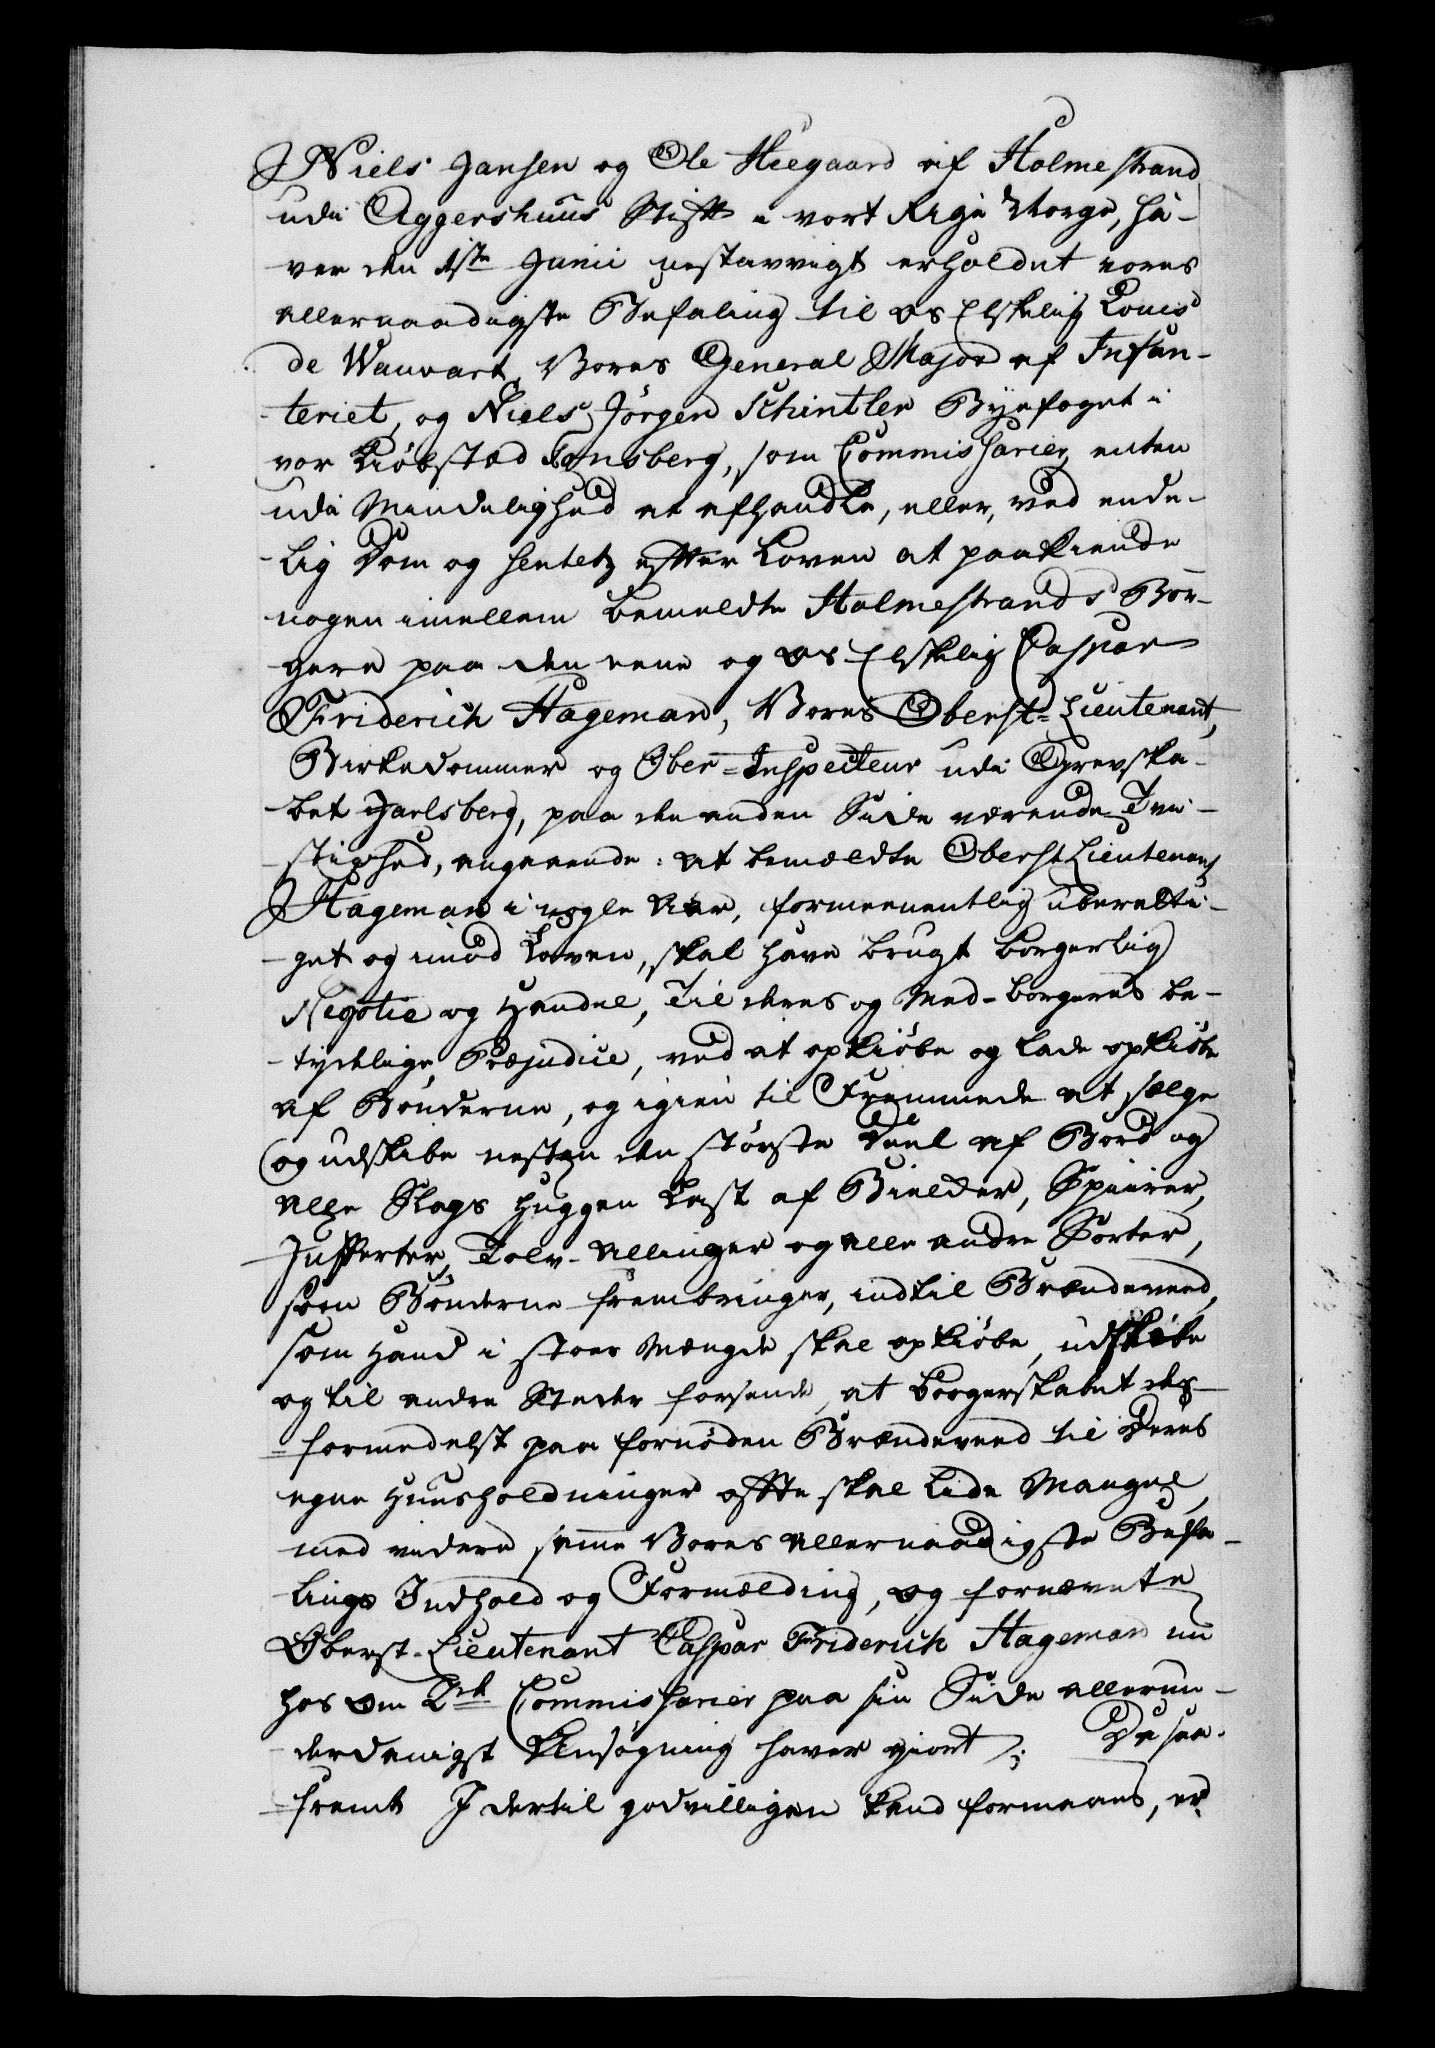 Niels Jansen og Ole Heegaard af Holmestrand
udi Aggershuus Stift i vort Rige Norge, ha-
ver den 1ste Junii nestavvigt erholdet vores
allernaadigste Befaling til os Elskelig Louis
de Wauvart, Vores General Major af Infan-
teriet, og Niels Jørgen Schintler Byefoget i
vor Kiøbstad Tønsberg, som Commissarier, enten
udi Mindelighed at afhandle, eller, ved ende-
lig Dom og Sentetz efter Loven at paakiende
nogen imellem bemeldte Holmestrands Bor-
gere paa den eene og os Elskelig Caspar
Friderich Hageman, Vores Oberst-Lieutenant,
Birkedommer og Ober-Inspecteur udi Grevska-
bet Jarlsberg, paa den anden Side værende Tvi-
stighed, angaaende: at bemældte Oberst Lieutenant
Hageman i nogle Aar, formeenentlig uberetti-
get og imod Loven, skal have brugt borgerlig
Negotie og Handel, Til deres og Med-borgeres be-
tydelige Præjudice, ved at opkiøbe og lade opkiøbe
af Bønderne, og igien til Fremmede at sælge
og udskibe nesten den største Deel af Bord og
alle Slags huggen Last af Bielcker, Spiirer,
Jufferter, Tolv-Allinger og alle andre Sorter,
som Bønderne frembringer, indtil Brændeveed,
som Hand i stoer Mængde skal opkiøbe, udskibe
og til andre Steder forsende, at borgerskabet des-
formedelst paa fornøden Brændeveed til Deres
egne Huusholdninger offte skal lide Mangel,
med videre samme Vores allernaadigste Befa-
lings Indhold og Formælding, og fornævnte
Oberst-Lieutenant Caspar Friderich Hageman nu
hos om 2de Commissarier paa sin Side allerun-
derdanigst Ansøgning haver giort; Da saa-
fremt I dertil godvilligen kand formaaes, er